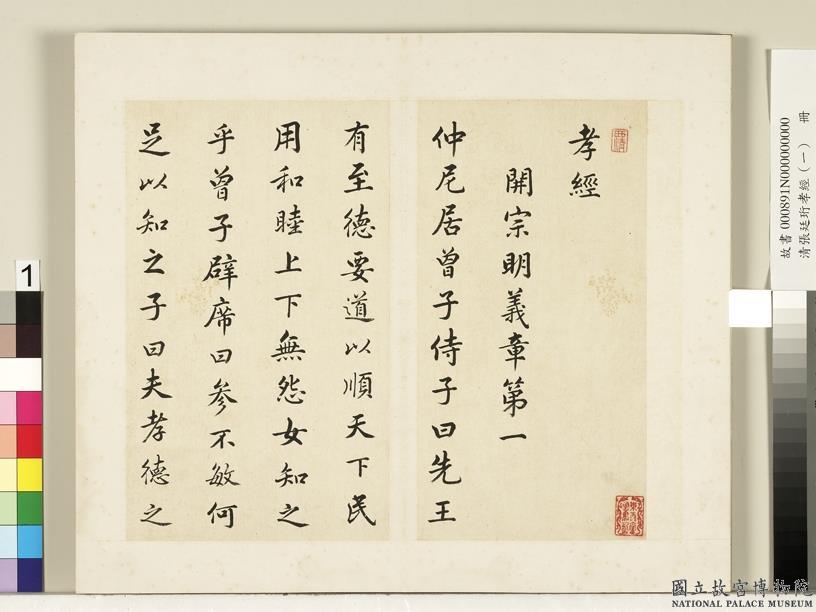 孝經
開宗明義章第一
仲尼居曾子侍子曰先王
有至德要道以順天下民
用和睦上下無怨女知之
乎曾子辟席曰參不敏何
足以知之子曰夫孝德之
故書000891N000000000
清張廷珩孝經（一） 冊
1
國立故宮博物院
NATIONAL PALACE MUSEUM